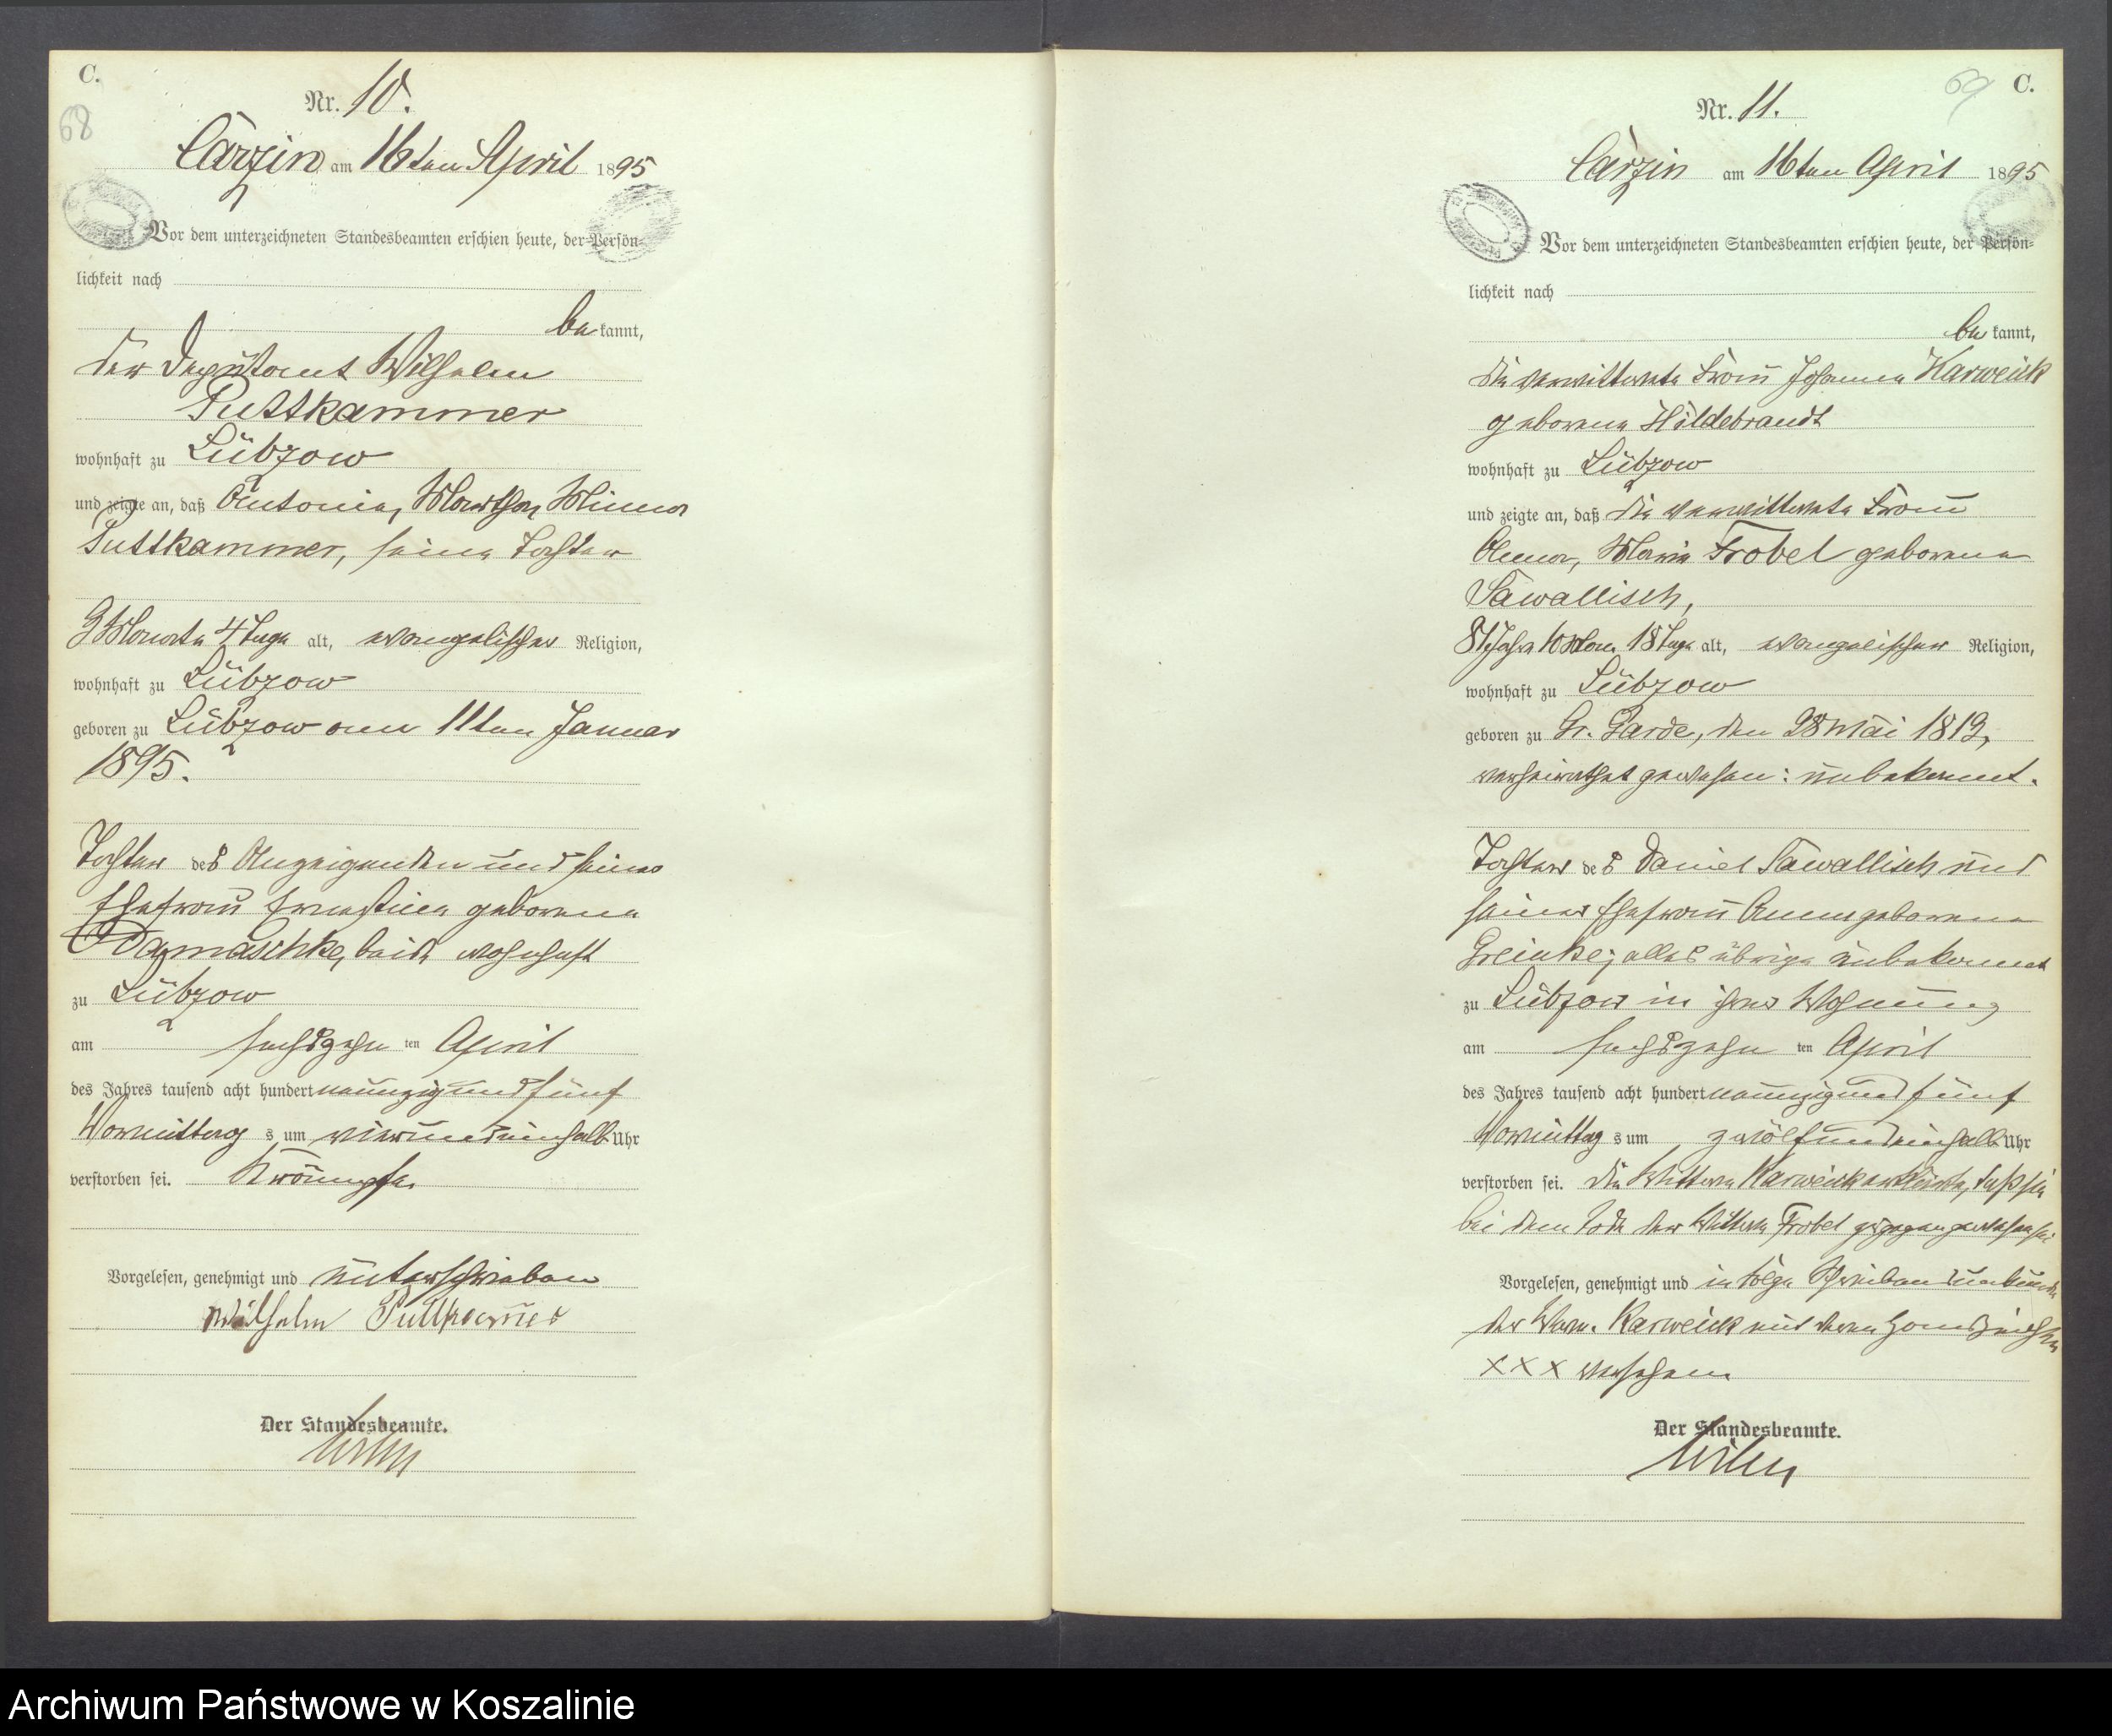 C.
68
Nr. 10.
Carzin am 16ten April 1895
Vor dem unterzeichneten Standesbeamten erschien heute, der Persön-
lichkeit nach
bekannt,
der Deputant Wilhelm
Puttkammer
wohnhaft zu Lübzow
und zeigte an, daß Antonie, Martha, Minna
Puttkammer, seine Tochter
Monate 4 Tage alt, evangelischer Religion,
wohnhaft zu Lübzow
geboren zu Lübzow am 11ten Januar
1895.
Tochter des Anzeigenden und seiner
Ehefrau Ernestine geborene
Damaschke, beide wohnhaft
zu Lübzow
am sechszehn ten April
des Jahres tausend acht hundert neunzig und fünf
Vormittag s um vierundeinhalb Uhr
verstorben sei. Krämpfe.
Vorgelesen, genehmigt und unterschrieben
Wilhelm Puttkammer
Der Standesbeamte.
69 C.
Nr. 11.
Carzin am 16ten April 1895
Vor dem unterzeichneten Standesbeamten erschien heute, der Persön-
lichkeit nach
bekannt,
die verwittwete Frau Johanna Karweick
geborene Hildebrandt
wohnhaft zu Lübzow
und zeigte an, daß die verwittwete Frau
Anna, Maria Frobel geborene
Sawallisch,
81 Jahre 10 Mon. 18 Tage alt, evangelischer Religion,
wohnhaft zu Lübzow
geboren zu Gr. Garde, den 28 Mai 1813,
verheirathet gewesen: unbekannt.
Tochter des Daniel Sawallisch und
seiner Ehefrau Anna geborene
Greinke; alles übrige unbekannt
zu Lübzow in ihrer Wohnung
am sechszehn ten April
des Jahres tausend acht hundert neunzig und fünf
Vormittag s um zwölfundeinhalb Uhr
verstorben sei. Die Wittwe Karweick erklärte, daß sie
bei dem Tode der Wittwe Frobel zugegen gewesen sei
Vorgelesen, genehmigt und in Folge Schreibensunkunde
der Wwe. Karweick mit deren Handzeichen
XXX versehen
Der Standesbeamte.
Archiwum Państwowe w Koszalinie